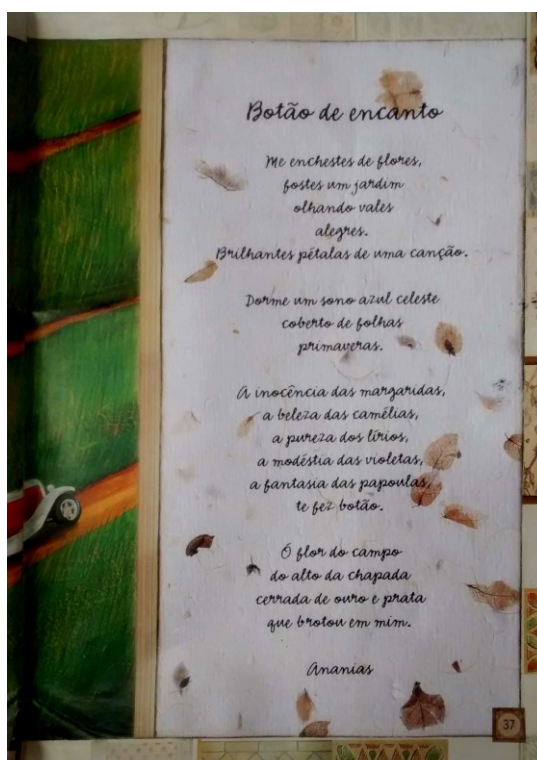 Botão de encanto
Me enchestes de flores,
fostes um jardim
olhando vales
alegres.
Brilhantes pétalas de uma canção.
Dorme um sono azul celeste
coberto de folhas
primaveras.
A inocência das margaridas,
a beleza das camélias,
a pureza dos lírios,
a modéstia das violetas,
a fantasia das papoulas,
te fez botão.
Ó flor do campo
do alto da chapada
cerrada de ouro e prata
que brotou em mim.
Ananias
37